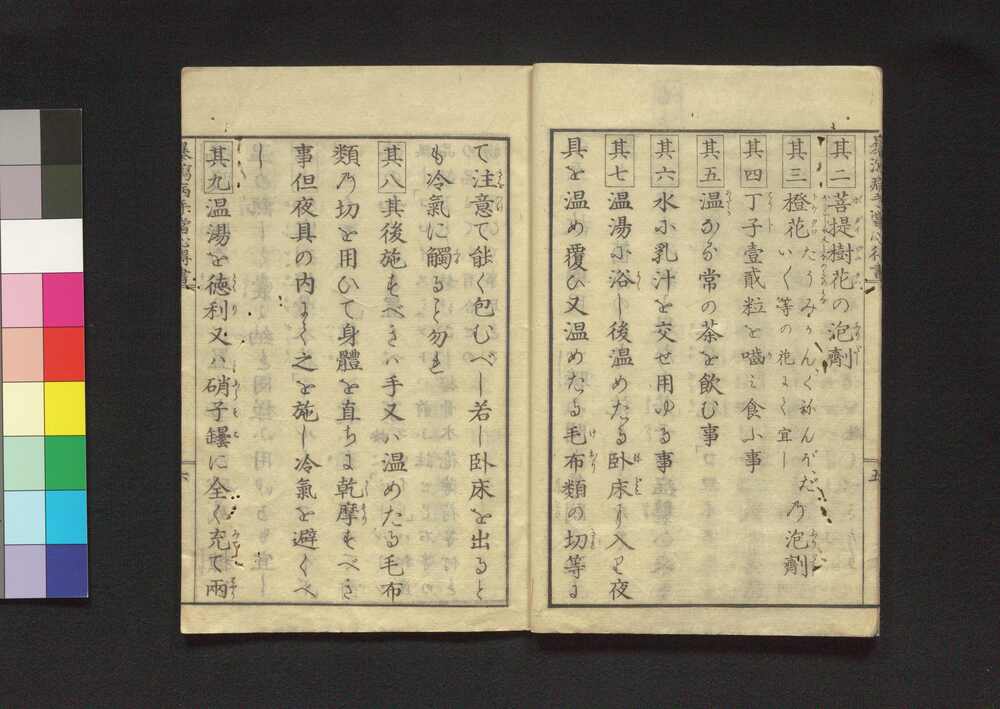 其二菩提樹花の泡劑
其三橙花
たうみかん、くねんが、だ
いく等の花よく宜し
乃泡劑
其四丁子壹貮粒を嚙み食ふ事
其五温かる常の茶を飲む事
其六水小乳汁を交せ用ゆる事
其七温湯に浴し後温めたる卧床より入て夜
具を温め覆ひ又温めたる毛布類の切等に
て注意て能く包むべし若し卧床を出ると
も冷氣に觸ること勿れ
其八其後施すべきは手又は温めたる毛布
類乃切を用ひて身體を直ちに乾摩すべき
事但夜具の内よく之を施し冷氣を避くべ
し
其九温湯を徳利又ハ硝子罎に全く充て兩
五
六
暴瀉病手當心得書